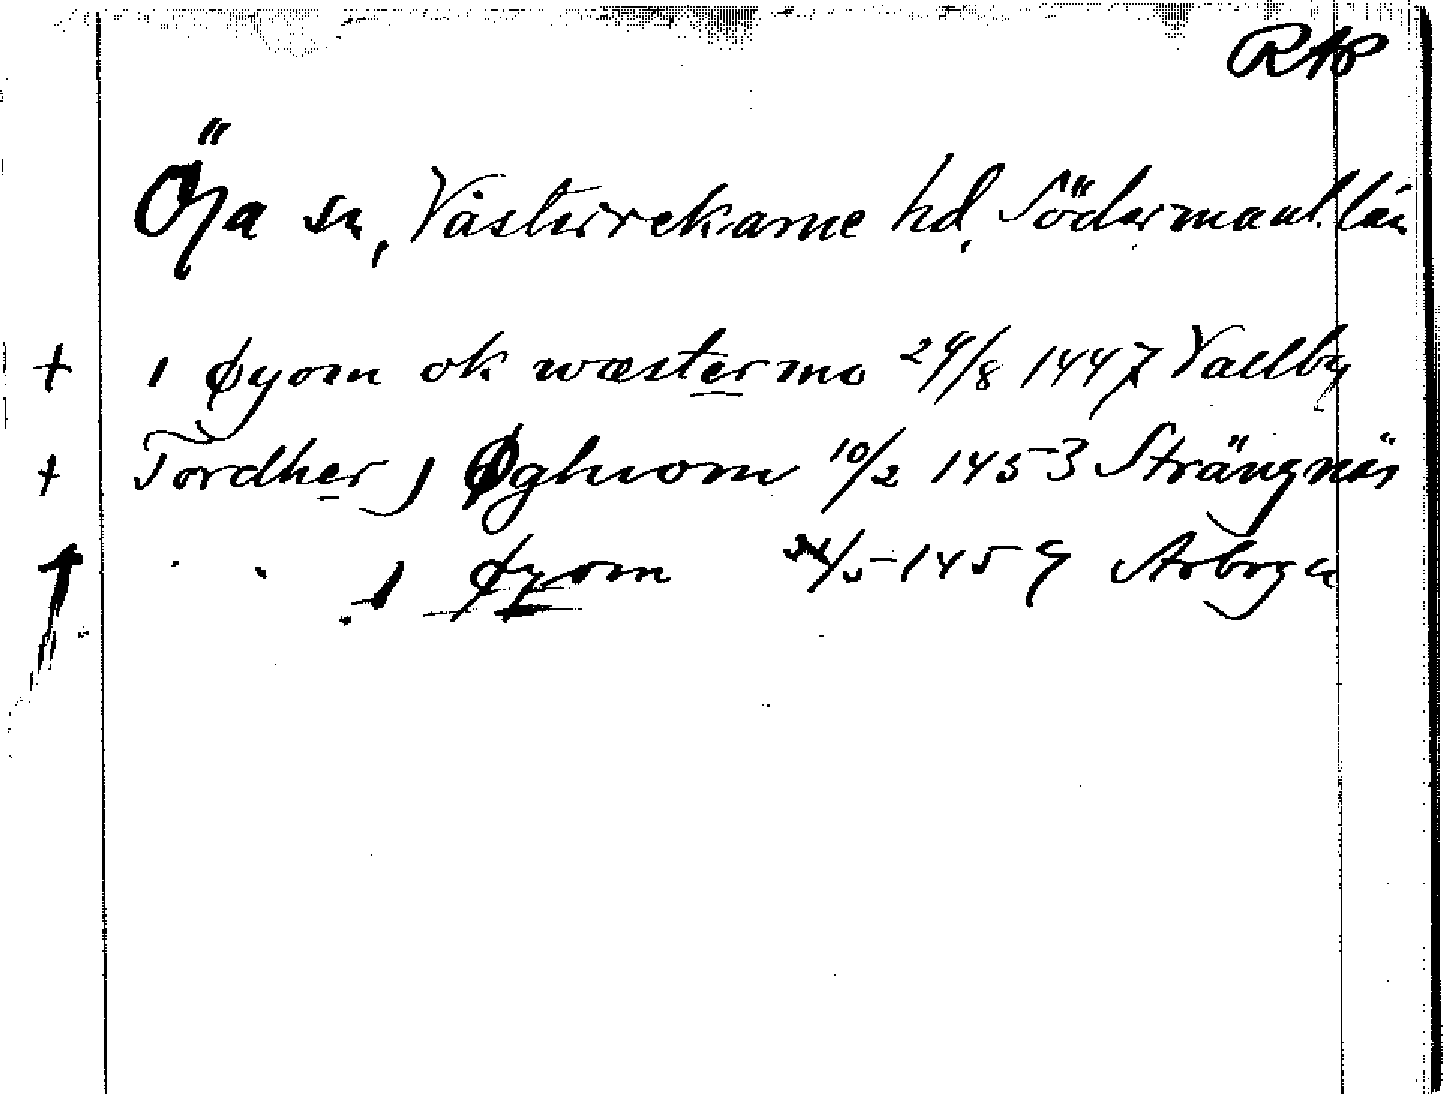 RAP
Öja sn, Västerrekarne hd, Södermanl. län
+ i øyom ok wæstermo 29/8 1447 Vallby
+ Tordher j Øghiom 10/2 1453 Strängnäs
j øyom /5 1459 Arboga